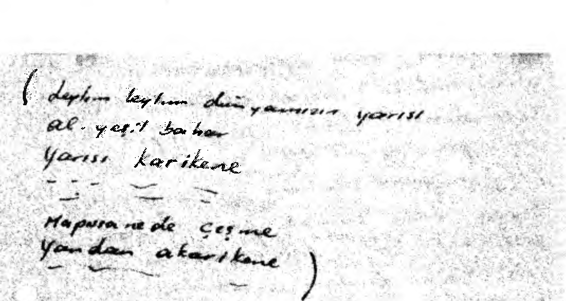 ( leylim leylim dünyamızın yarısı
al-yeşil bahar
Yarısı karikene
Mapusanede çeşme
Yandan akarikene )